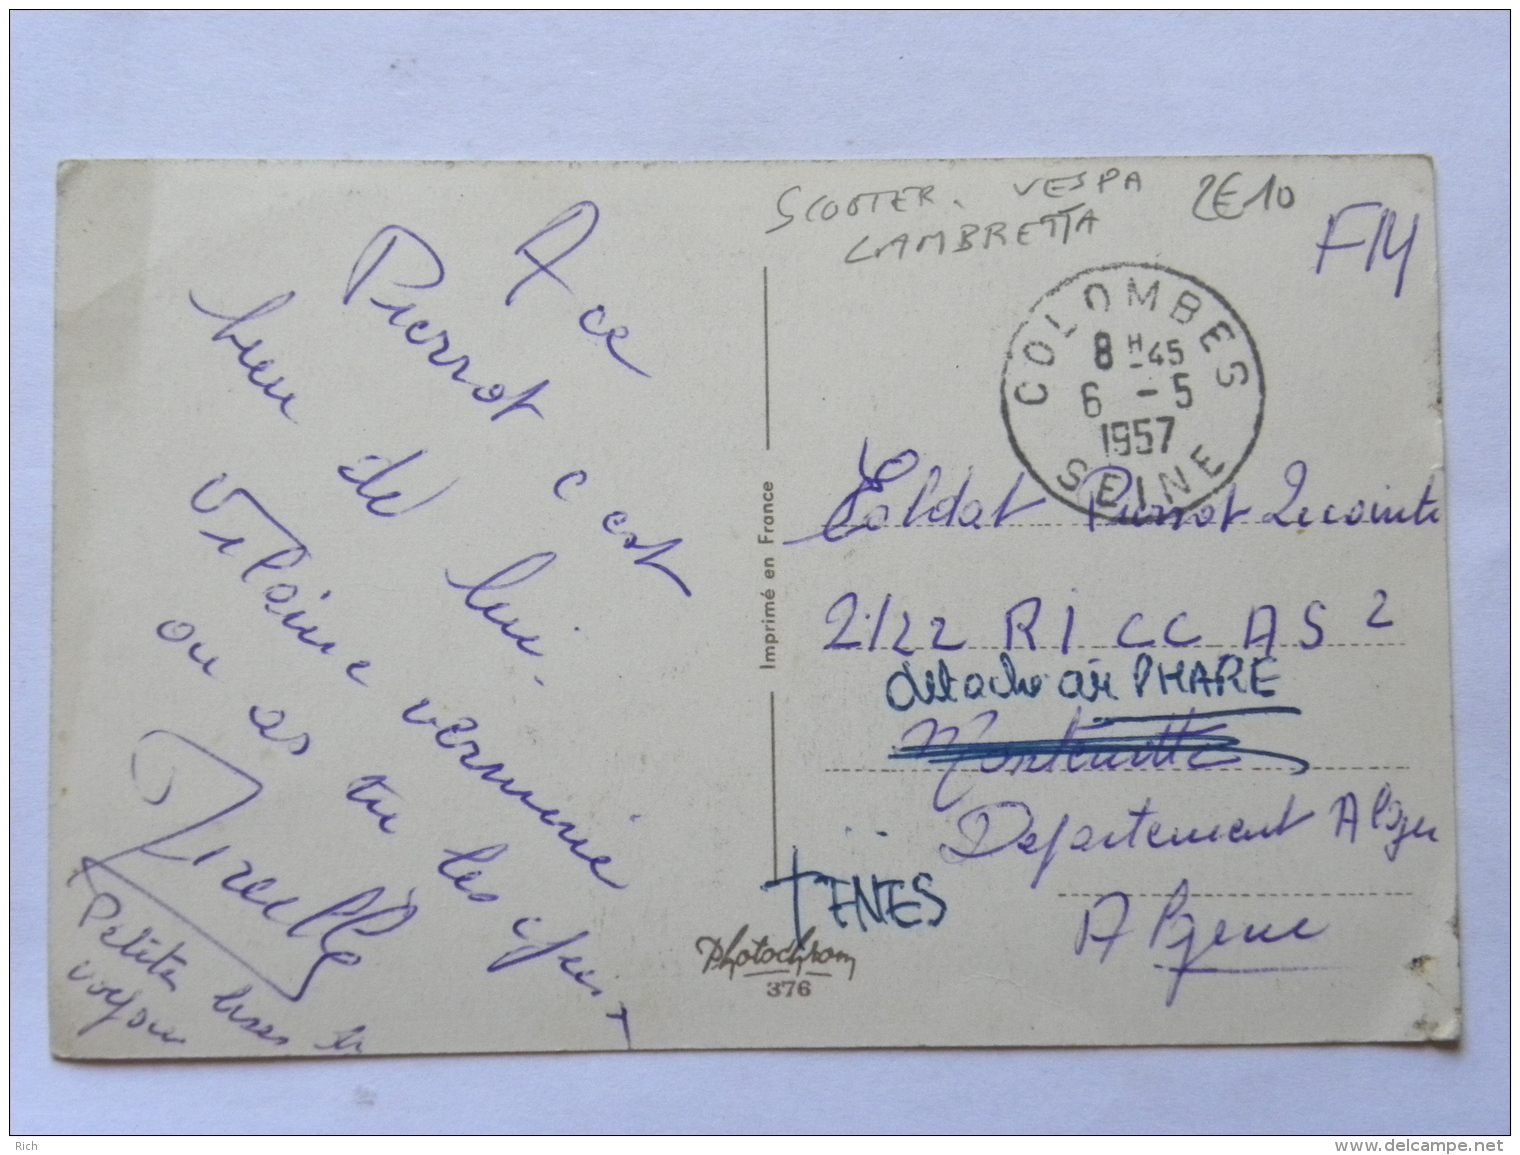 SCOOTER. VESPA
LAMBRETTA
2E10
FM
COLOMBES
8H45
6 - 5
1957
SEINE
A ce
Pierrot c est
bien de lui.
Vilaine vermine
ou as tu les
Mireille
Petites bises
voyou
Imprimé en France
Soldat Pierrot Lecointe
2/22 RI CC AS 2
détaché au PHARE
Montenotte
Departement Alger
TENES
Algerie
Photochrom
376
Rich
www.delcampe.net